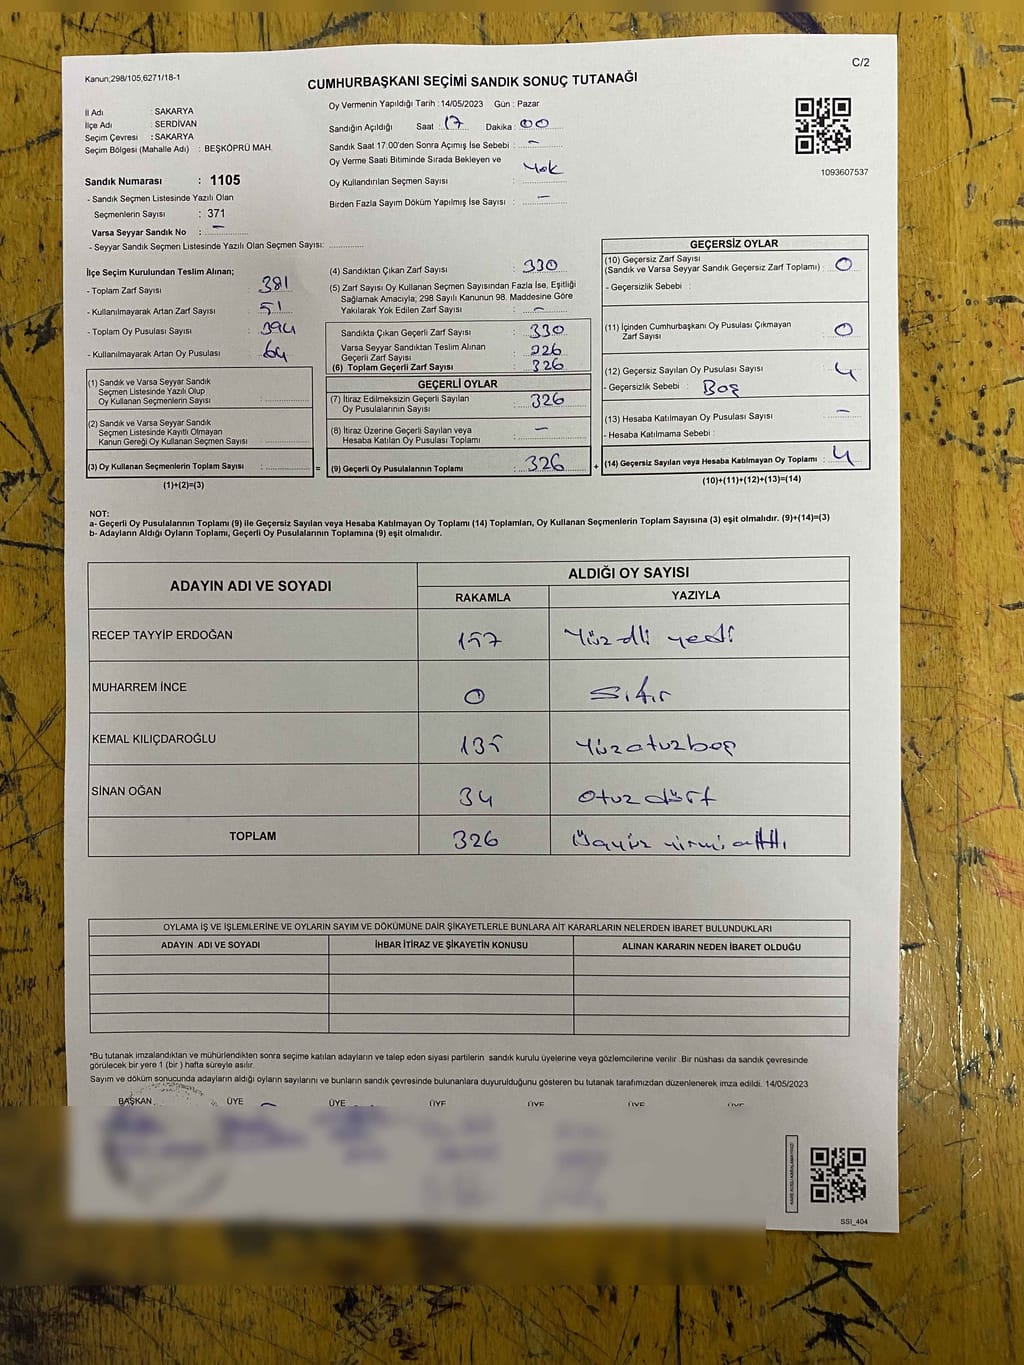 Kanun;298/105;6271/18-1
C/2
CUMHURBAŞKANI SEÇİMİ SANDIK SONUÇ TUTANAĞI
İl Adı : SAKARYA
İlçe Adı : SERDİVAN
Seçim Çevresi : SAKARYA
Seçim Bölgesi (Mahalle Adı) : BEŞKÖPRÜ MAH.
Sandık Numarası : 1105
- Sandık Seçmen Listesinde Yazılı Olan
Seçmenlerin Sayısı : 371
Varsa Seyyar Sandık No : –
- Seyyar Sandık Seçmen Listesinde Yazılı Olan Seçmen Sayısı: ..............
Oy Vermenin Yapıldığı Tarih : 14/05/2023 Gün : Pazar
Sandığın Açıldığı Saat : 17 Dakika : 00
Sandık Saat 17:00'den Sonra Açımış İse Sebebi : –
Oy Verme Saati Bitiminde Sırada Bekleyen ve
Oy Kullandırılan Seçmen Sayısı : Yok
Birden Fazla Sayım Döküm Yapılmış İse Sayısı : –
1093607537
İlçe Seçim Kurulundan Teslim Alınan;
- Toplam Zarf Sayısı : 381
- Kullanılmayarak Artan Zarf Sayısı : 51
- Toplam Oy Pusulası Sayısı : 394
- Kullanılmayarak Artan Oy Pusulası : 64
(1) Sandık ve Varsa Seyyar Sandık
Seçmen Listesinde Yazılı Olup
Oy Kullanan Seçmenlerin Sayısı :
(2) Sandık ve Varsa Seyyar Sandık
Seçmen Listesinde Kayıtlı Olmayan
Kanun Gereği Oy Kullanan Seçmen Sayısı :
(3) Oy Kullanan Seçmenlerin Toplam Sayısı : =
(1)+(2)=(3)
(4) Sandıktan Çıkan Zarf Sayısı : 330
(5) Zarf Sayısı Oy Kullanan Seçmen Sayısından Fazla İse, Eşitliği
Sağlamak Amacıyla; 298 Sayılı Kanunun 98. Maddesine Göre
Yakılarak Yok Edilen Zarf Sayısı : –
Sandıkta Çıkan Geçerli Zarf Sayısı : 330
Varsa Seyyar Sandıktan Teslim Alınan
Geçerli Zarf Sayısı : 226
(6) Toplam Geçerli Zarf Sayısı : 326
GEÇERLİ OYLAR
(7) İtiraz Edilmeksizin Geçerli Sayılan
Oy Pusulalarının Sayısı : 326
(8) İtiraz Üzerine Geçerli Sayılan veya
Hesaba Katılan Oy Pusulası Toplamı : –
(9) Geçerli Oy Pusulalarının Toplamı : 326 +
GEÇERSİZ OYLAR
(10) Geçersiz Zarf Sayısı
(Sandık ve Varsa Seyyar Sandık Geçersiz Zarf Toplamı) : 0
- Geçersizlik Sebebi :
(11) İçinden Cumhurbaşkanı Oy Pusulası Çıkmayan
Zarf Sayısı : 0
(12) Geçersiz Sayılan Oy Pusulası Sayısı : 4
- Geçersizlik Sebebi : Boş
(13) Hesaba Katılmayan Oy Pusulası Sayısı : –
- Hesaba Katılmama Sebebi :
(14) Geçersiz Sayılan veya Hesaba Katılmayan Oy Toplamı : 4
(10)+(11)+(12)+(13)=(14)
NOT:
a- Geçerli Oy Pusulalarının Toplamı (9) ile Geçersiz Sayılan veya Hesaba Katılmayan Oy Toplamı (14) Toplamları, Oy Kullanan Seçmenlerin Toplam Sayısına (3) eşit olmalıdır. (9)+(14)=(3)
b- Adayların Aldığı Oyların Toplamı, Geçerli Oy Pusulalarının Toplamına (9) eşit olmalıdır.
ADAYIN ADI VE SOYADI
ALDIĞI OY SAYISI
RAKAMLA YAZIYLA
RECEP TAYYİP ERDOĞAN 157 Yüzelli yedi
MUHARREM İNCE 0 Sıfır
KEMAL KILIÇDAROĞLU 135 Yüzotuzbeş
SİNAN OĞAN 34 Otuz dört
TOPLAM 326 Üçyüz yirmi altı
OYLAMA İŞ VE İŞLEMLERİNE VE OYLARIN SAYIM VE DÖKÜMÜNE DAİR ŞİKAYETLERLE BUNLARA AİT KARARLARIN NELERDEN İBARET BULUNDUKLARI
ADAYIN ADI VE SOYADI İHBAR İTİRAZ VE ŞİKAYETİN KONUSU ALINAN KARARIN NEDEN İBARET OLDUĞU
*Bu tutanak imzalandıktan ve mühürlendikten sonra seçime katılan adayların ve talep eden siyasi partilerin sandık kurulu üyelerine veya gözlemcilerine verilir .Bir nüshası da sandık çevresinde
görülecek bir yere 1 (bir ) hafta süreyle asılır.
Sayım ve döküm sonucunda adayların aldığı oyların sayılarını ve bunların sandık çevresinde bulunanlara duyurulduğunu gösteren bu tutanak tarafımızdan düzenlenerek imza edildi. 14/05/2023
BAŞKAN ÜYE ÜYE ÜYE ÜYE ÜYE ÜYE
SSI_404